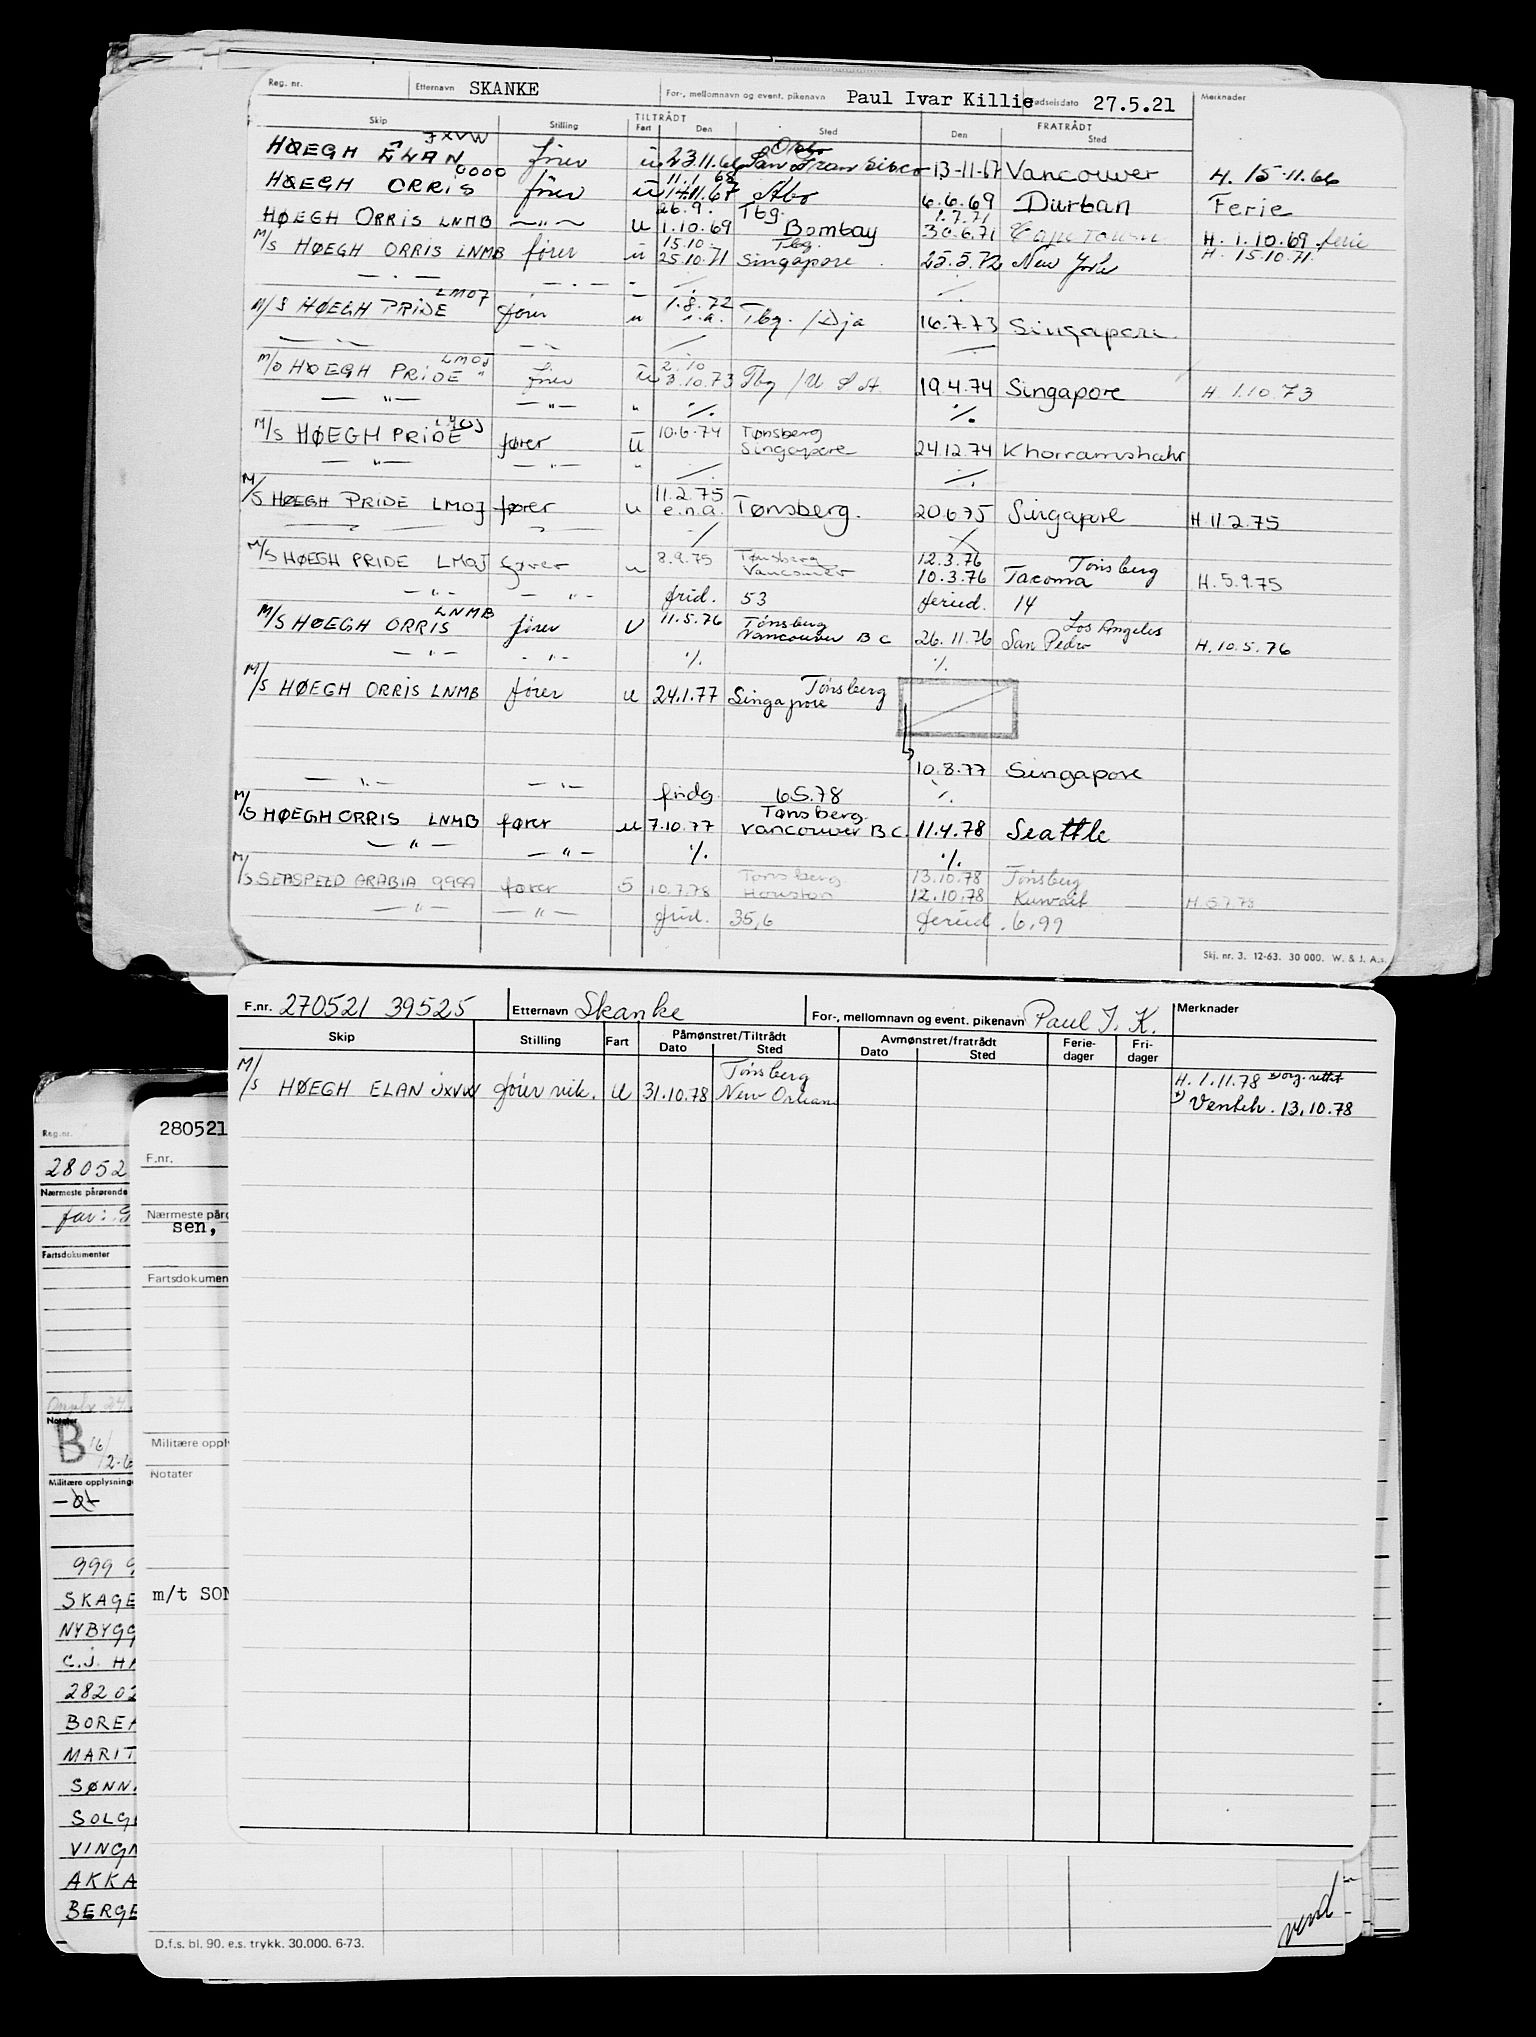 Reg. nr. Etternavn SKANKE For-, mellomnavn og event. pikenavn Paul Ivar Killie Fødselsdato 27.5.21 Merknader
Skip Stilling TILTRÅDT Fart Den Sted FRATRÅDT Den Sted
JXVW Oslo
HØEGH ELAN fører u 23.11.66 San Fransisco 13-11-67 Vancouver H. 15-11.66
0000 11.1 68
HØEGH ORRIS fører u 14.11.67 Åbo 6.6.69 Durban Ferie
26.9. Tbg. 1.7.71
HØEGH ORRIS LNMB —"— u 1.10.69 Bombay 30.6.71 Cape Town H. 1.10.69 ferie
15.10. Tbg. H. 15.10.71.
M/S HØEGH ORRIS LNMB fører u 25.10.71 Singapore 25.5.72 New York
LMOJ 1.8.72
M/S HØEGH PRIDE fører u e.n.a. Tbg. / Dja 16.7.73 Singapore
LMOJ 2.10
M/S HØEGH PRIDE fører u 3.10.73 Tbg / U S A. 19.4.74 Singapore H. 1.10.73
— " — — " — " ./. ./.
LMOJ 10.6.74 Tønsberg
M/S HØEGH PRIDE fører u Singapore 24.12.74 Khorramshahr
— " — — " — " ./. ./.
11.2.75
M/S HØEGH PRIDE LMOJ fører u e.n.a. Tønsberg. 20.6.75 Singapore H 11.2.75
8.9.75 Tønsberg 12.3.76 Tønsberg
M/S HØEGH PRIDE LMOJ fører u Vancouver 10.3.76 Tacoma H. 5.9.75
— " — — " — frid. 53 feried. 14
LNMB 11.5.76 Tønsberg Los Angeles
M/S HØEGH ORRIS fører U Vancouver B C 26.11.76 San Pedro H. 10.5.76
— " — — " — ./. ./.
Tønsberg
M/S HØEGH ORRIS LNMB fører u 24.1.77 Singapore
10.8.77 Singapore
— " — — " — fridg. 65.78 ./.
Tønsberg.
M/S HØEGH ORRIS LNMB fører u 7.10.77 Vancouver B C. 11.4.78 Seattle
— " — — " — ./. ./.
Tønsberg 13.10.78 Tønsberg
M/S SEASPEED ARABIA 9999 fører 5 10.7.78 Houston 12.10.78 Kuwait H 5.7.78
— " — — " — frid. 35,6 feried. 6.99
Skj. nr. 3. 12-63. 30 000. W. & J. A.s.
F.nr. 270521 39525 Etternavn Skanke For-, mellomnavn og event. pikenavn Paul I. K. Merknader
Skip Stilling Fart Påmønstret/Tiltrådt Dato Sted Avmønstret/fratrådt Dato Sted Ferie-dager Fri-dager
Tønsberg H. 1.11.78
M/S HØEGH ELAN JXVW fører vik. U 31.10.78 New Orleans Venteh. 13.10.78
Reg.nr.
28052
Nærmeste pårørende
far:
Fartsdokumenter
Notater
B 16/
12-6
Militære opplysninge
999 9
SKAGE
NYBYGG
C.J. HA
28202
BOREA
MARIT
SØNN
SOLG
VINGN
AKKA
BERGE
280521
F.nr.
Nærmeste påro
sen,
Fartsdokumen
Militære opply
Notater
m/t SON
D.f.s. bl. 90. e.s. trykk. 30.000. 6-73.
vend